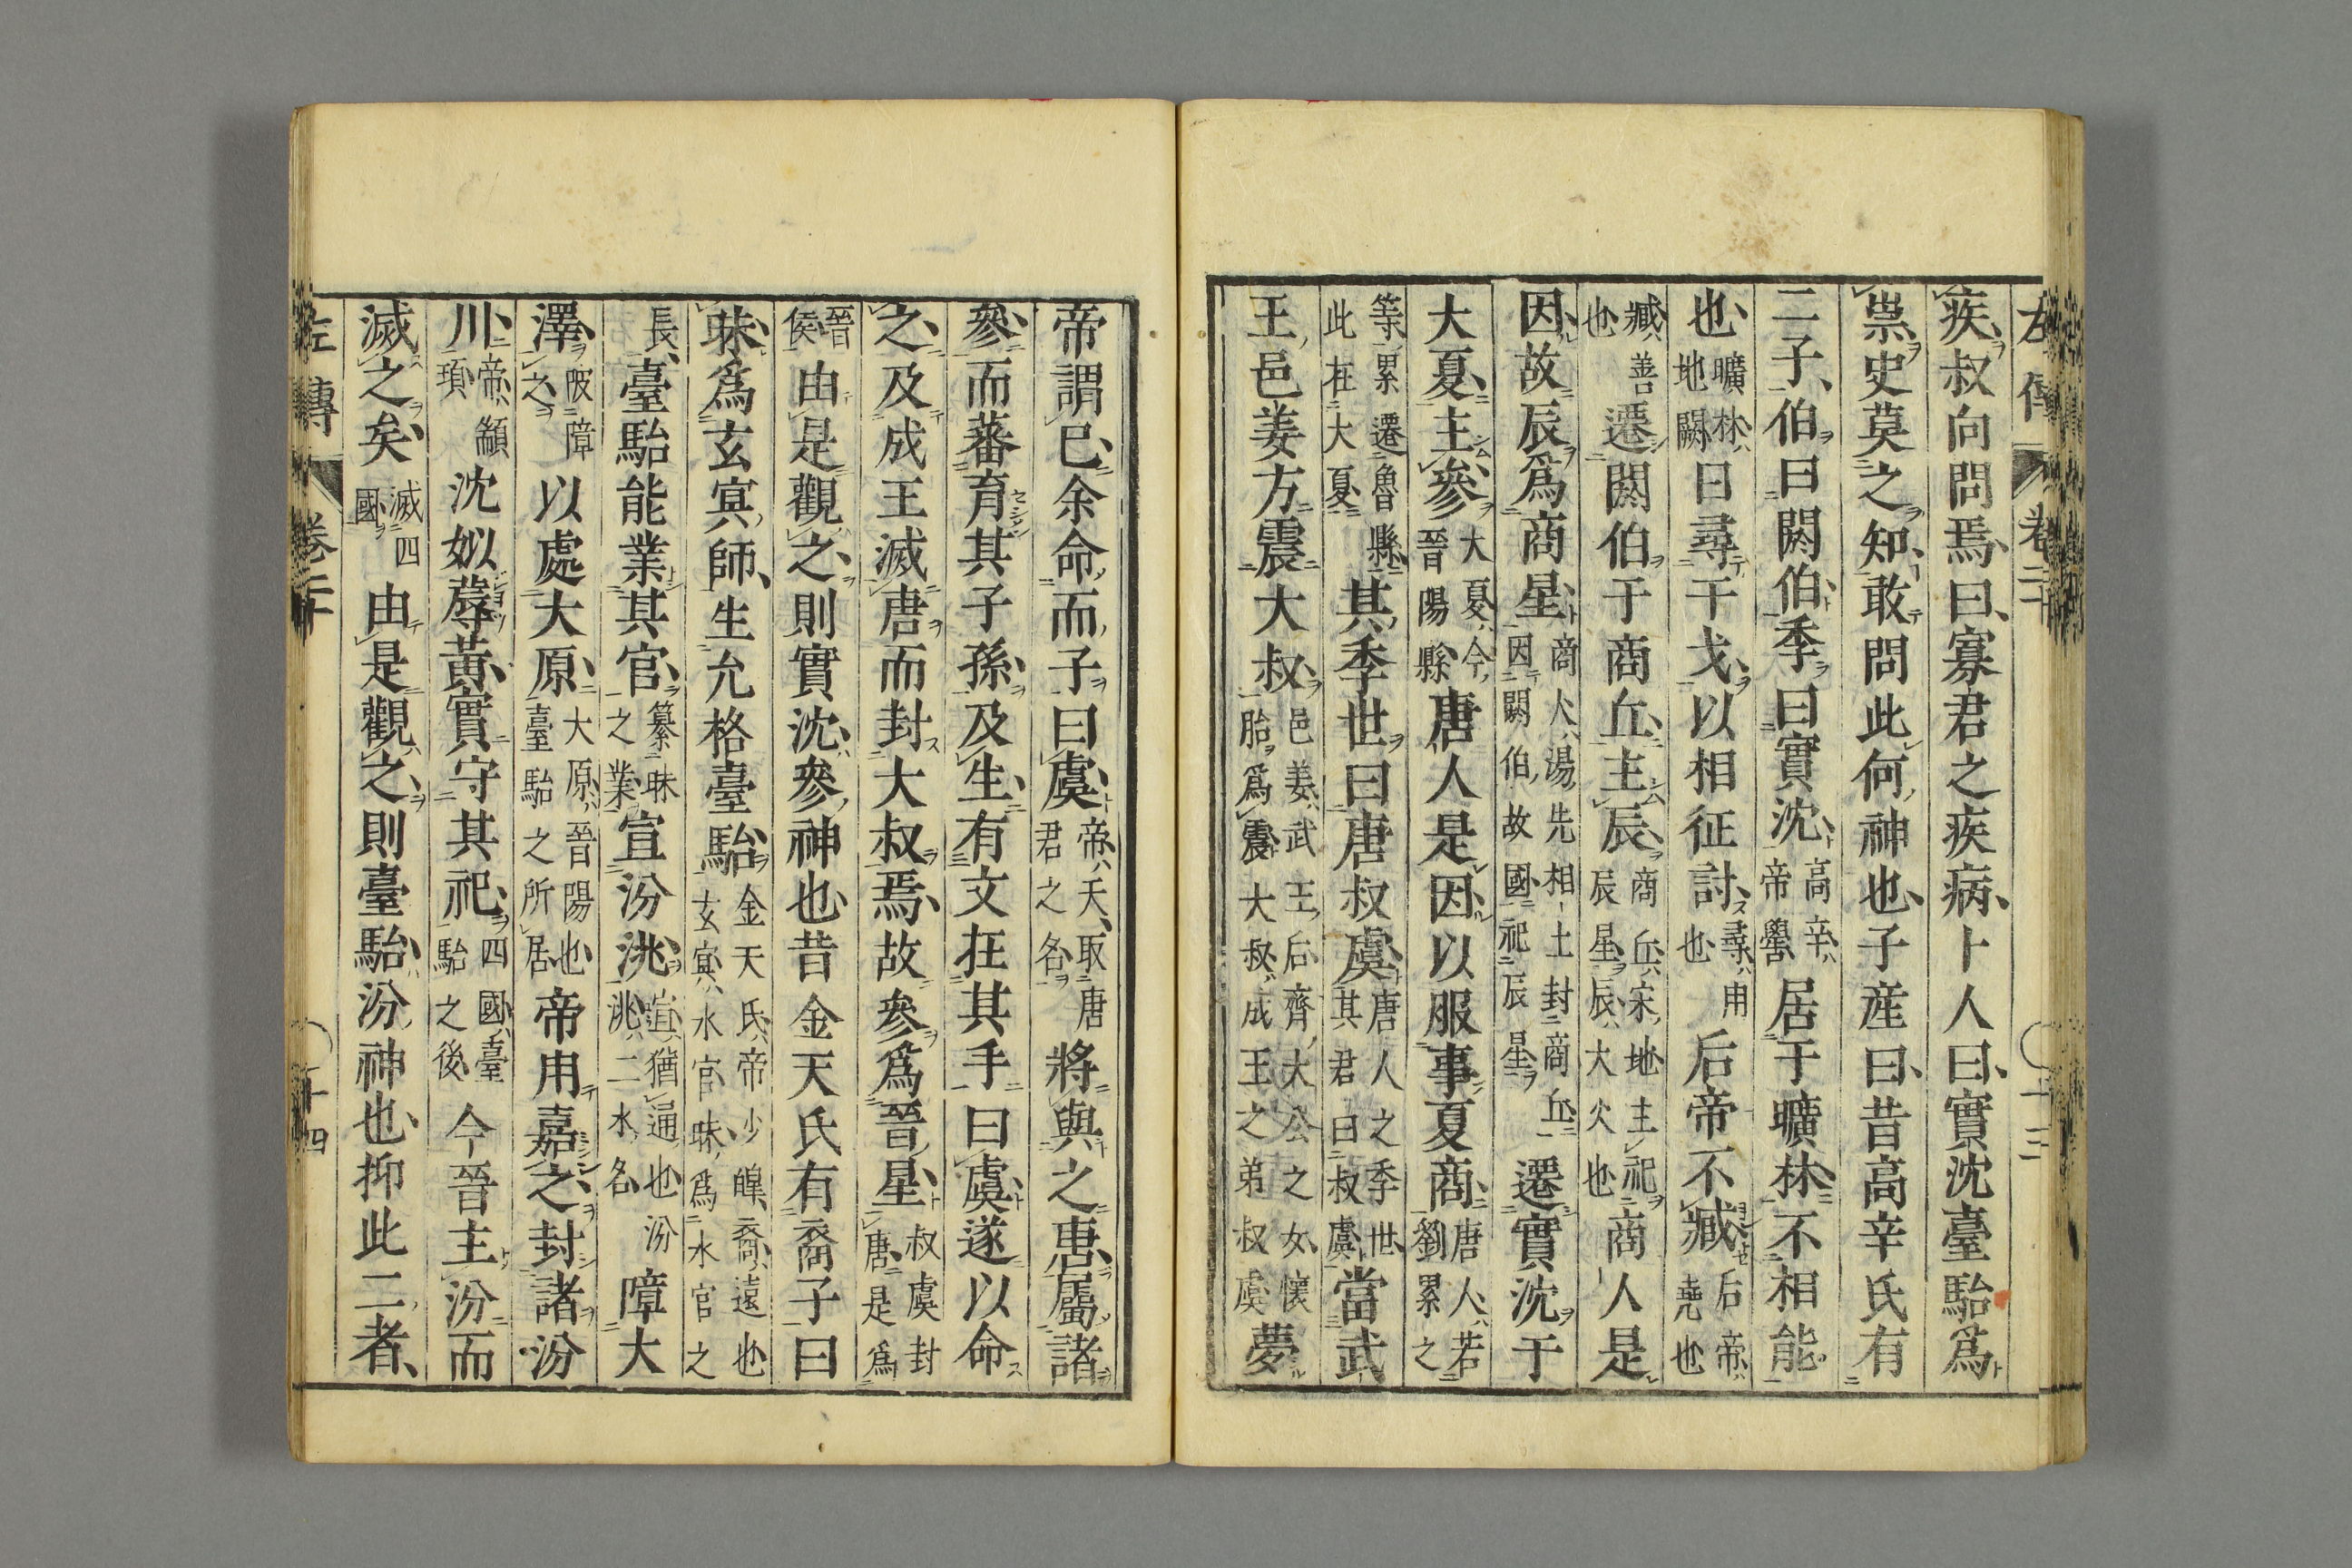 左傳 卷二十 十三
疾叔向問焉曰寡君之疾病卜人曰實沈臺駘爲
祟史莫之知敢問此何神也子産曰昔高辛氏有
二子伯曰閼伯季曰實沈高辛帝嚳居于曠林不相能
也曠林地闕日尋干戈以相征討尋用也后帝不臧后帝堯也
臧善也遷閼伯于商丘主辰商丘宋地主祀辰星辰大火也商人是
因故辰爲商星商人湯先相土封商丘因閼伯故國祀辰星遷實沈于
大夏主參大夏今晉陽縣唐人是因以服事夏商唐人若劉累之
等累遷魯縣此在大夏其季世曰唐叔虞唐人之季世其君曰叔虞當武
王邑姜方震大叔邑姜武王后齊大公之女懷胎爲震大叔成王之弟叔虞夢
帝謂已余命而子曰虞帝天取唐君之名將與之唐屬諸
參而蕃育其子孫及生有文在其手曰虞遂以命
之及成王滅唐而封大叔焉故參爲晉星叔虞封唐是爲
晉侯由是觀之則實沈參神也昔金天氏有裔子曰
昧爲玄冥師生允格臺駘金天氏帝少皥裔遠也玄冥水官昧爲水官之
長臺駘能業其官纂昧之業宣汾洮宣猶通也汾洮二水名障大
澤陂障之以處大原大原晉陽也臺駘之所居帝用嘉之封諸汾
川帝顓頊沈姒蓐黃實守其祀四國臺駘之後今晉主汾而
滅之矣滅四國由是觀之則臺駘汾神也抑此二者
左傳 卷二十 十四